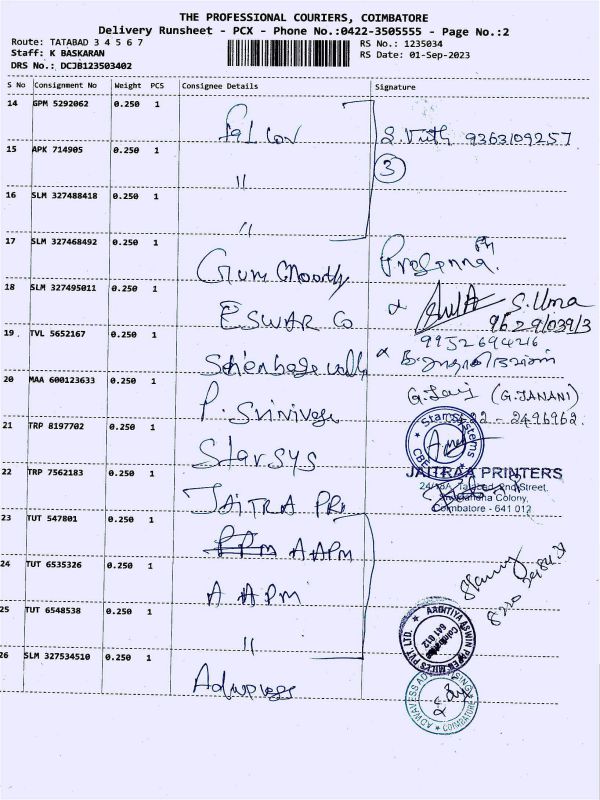 THE PROFESSIONAL COURIERS, COIMBATORE
Delivery Runsheet - PCX - Phone No.:0422-3505555 - Page No.:2
Route: TATABAD 3 4 5 6 7
RS No.: 1235034
Staff: K BASKARAN
RS Date: 01-Sep-2023
DRS No.: DCJB123503402
S No Consignment No Weight PCS Consignee Details Signature
14 GPM 5292062 0.250 1 Falcon
9363109257
15 APK 714905 0.250 1 〃
3
16 SLM 327488418 0.250 1 〃
17 SLM 327468492 0.250 1 Guru Moorthy Prasanna
18 SLM 327495011 0.250 1 ESWAR Co S. Uma
9952694216
19 TVL 5652167 0.250 1
20 MAA 600123633 0.250 1 P. Srinivas (G.JANANI)
22 - 2496962
21 TRP 8197702 0.250 1 Starsys
Star Systems
CBE
JAITRAA PRINTERS
2nd Street,
Colony,
Coimbatore - 641 012
22 TRP 7562183 0.250 1 JAITRA PRI
23 TUT 547801 0.250 1 AAPM
24 TUT 6535326 0.250 1 AAPM
25 TUT 6548538 0.250 1 〃
AADITIYA ASWIN PAPER MILLS PVT. LTD.
Coimbatore
641 012
26 SLM 327534510 0.250 1
ADWAVESS ADVERTISING
COIMBATORE